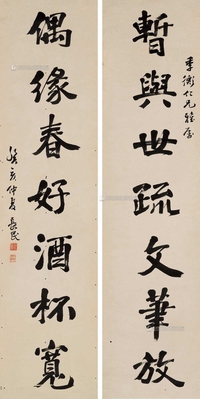 季衡仁兄雅属
暫與世疏文華放
偶緣春好酒杯寬
癸亥仲夏